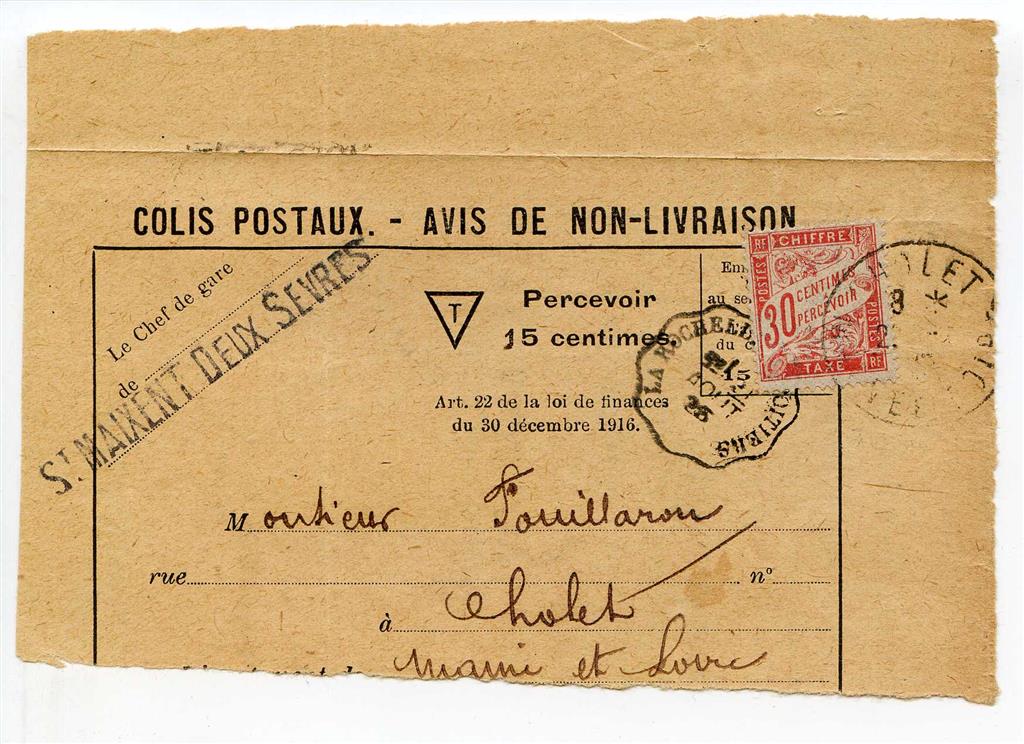 COLIS POSTAUX. - AVIS DE NON-LIVRAISON
Le Chef de gare
de
ST MAIXENT DEUX. SEVRES
T
Percevoir
15 centimes.
Art. 22 de la loi de finances
du 30 décembre 1916.
Em
au se
du
15
RF CHIFFRE
POSTES
30 CENTIMES
PERCEVOIR
POSTES
TAXE RF
LA ROCHELLE
POITIERS
AOUT
25
CHOLET
Monsieur Fouillaron
rue n°
à Cholet
Maine et Loire